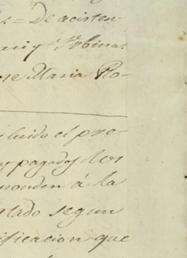 = De acisten-
Urbina
Jose Maria Ro-
cluido el pro-
pagados los
ponden á la
tado segun
ificacion que